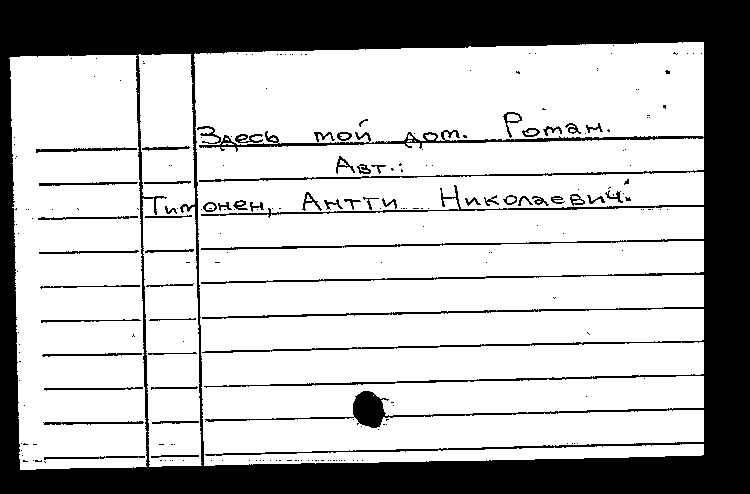 Здесь мой дом. Роман.
Авт.:
Тимонен, Антти Николаевич.